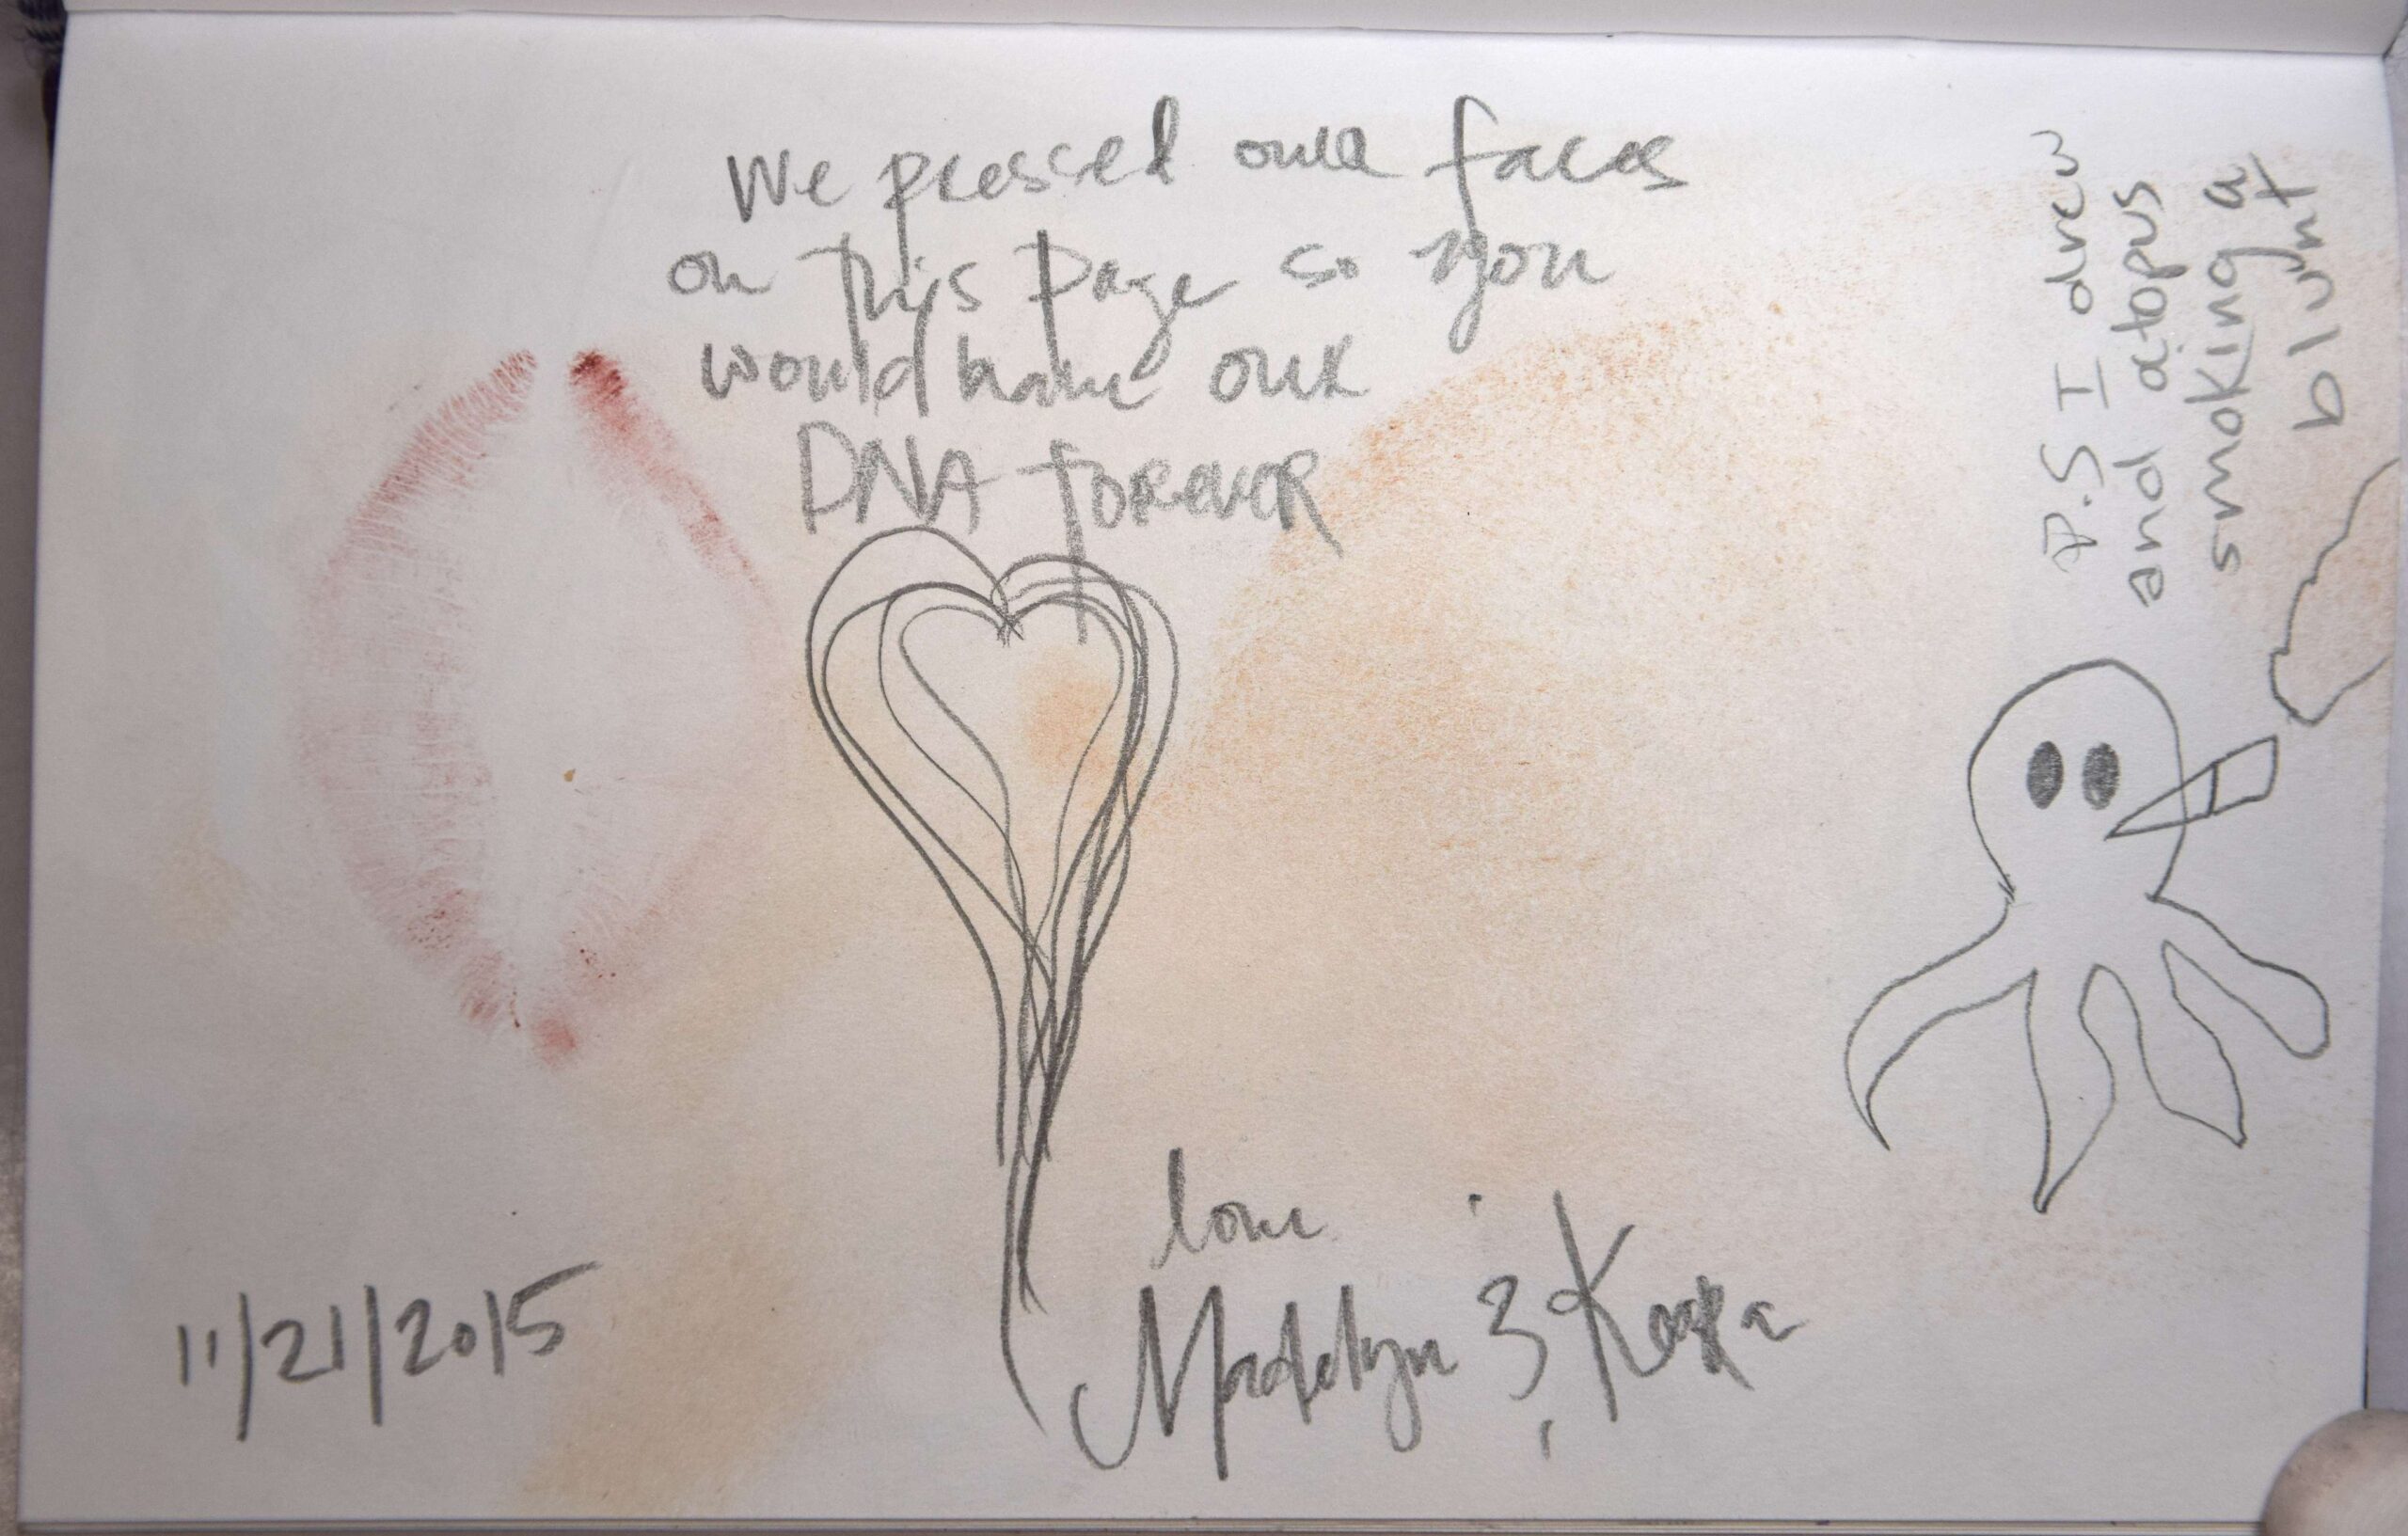 We pressed our faces
on this page so you
would have our
DNA forever
love
Madelyn &
11/21/2015
P.S I drew
and octopus
smoking a
blunt